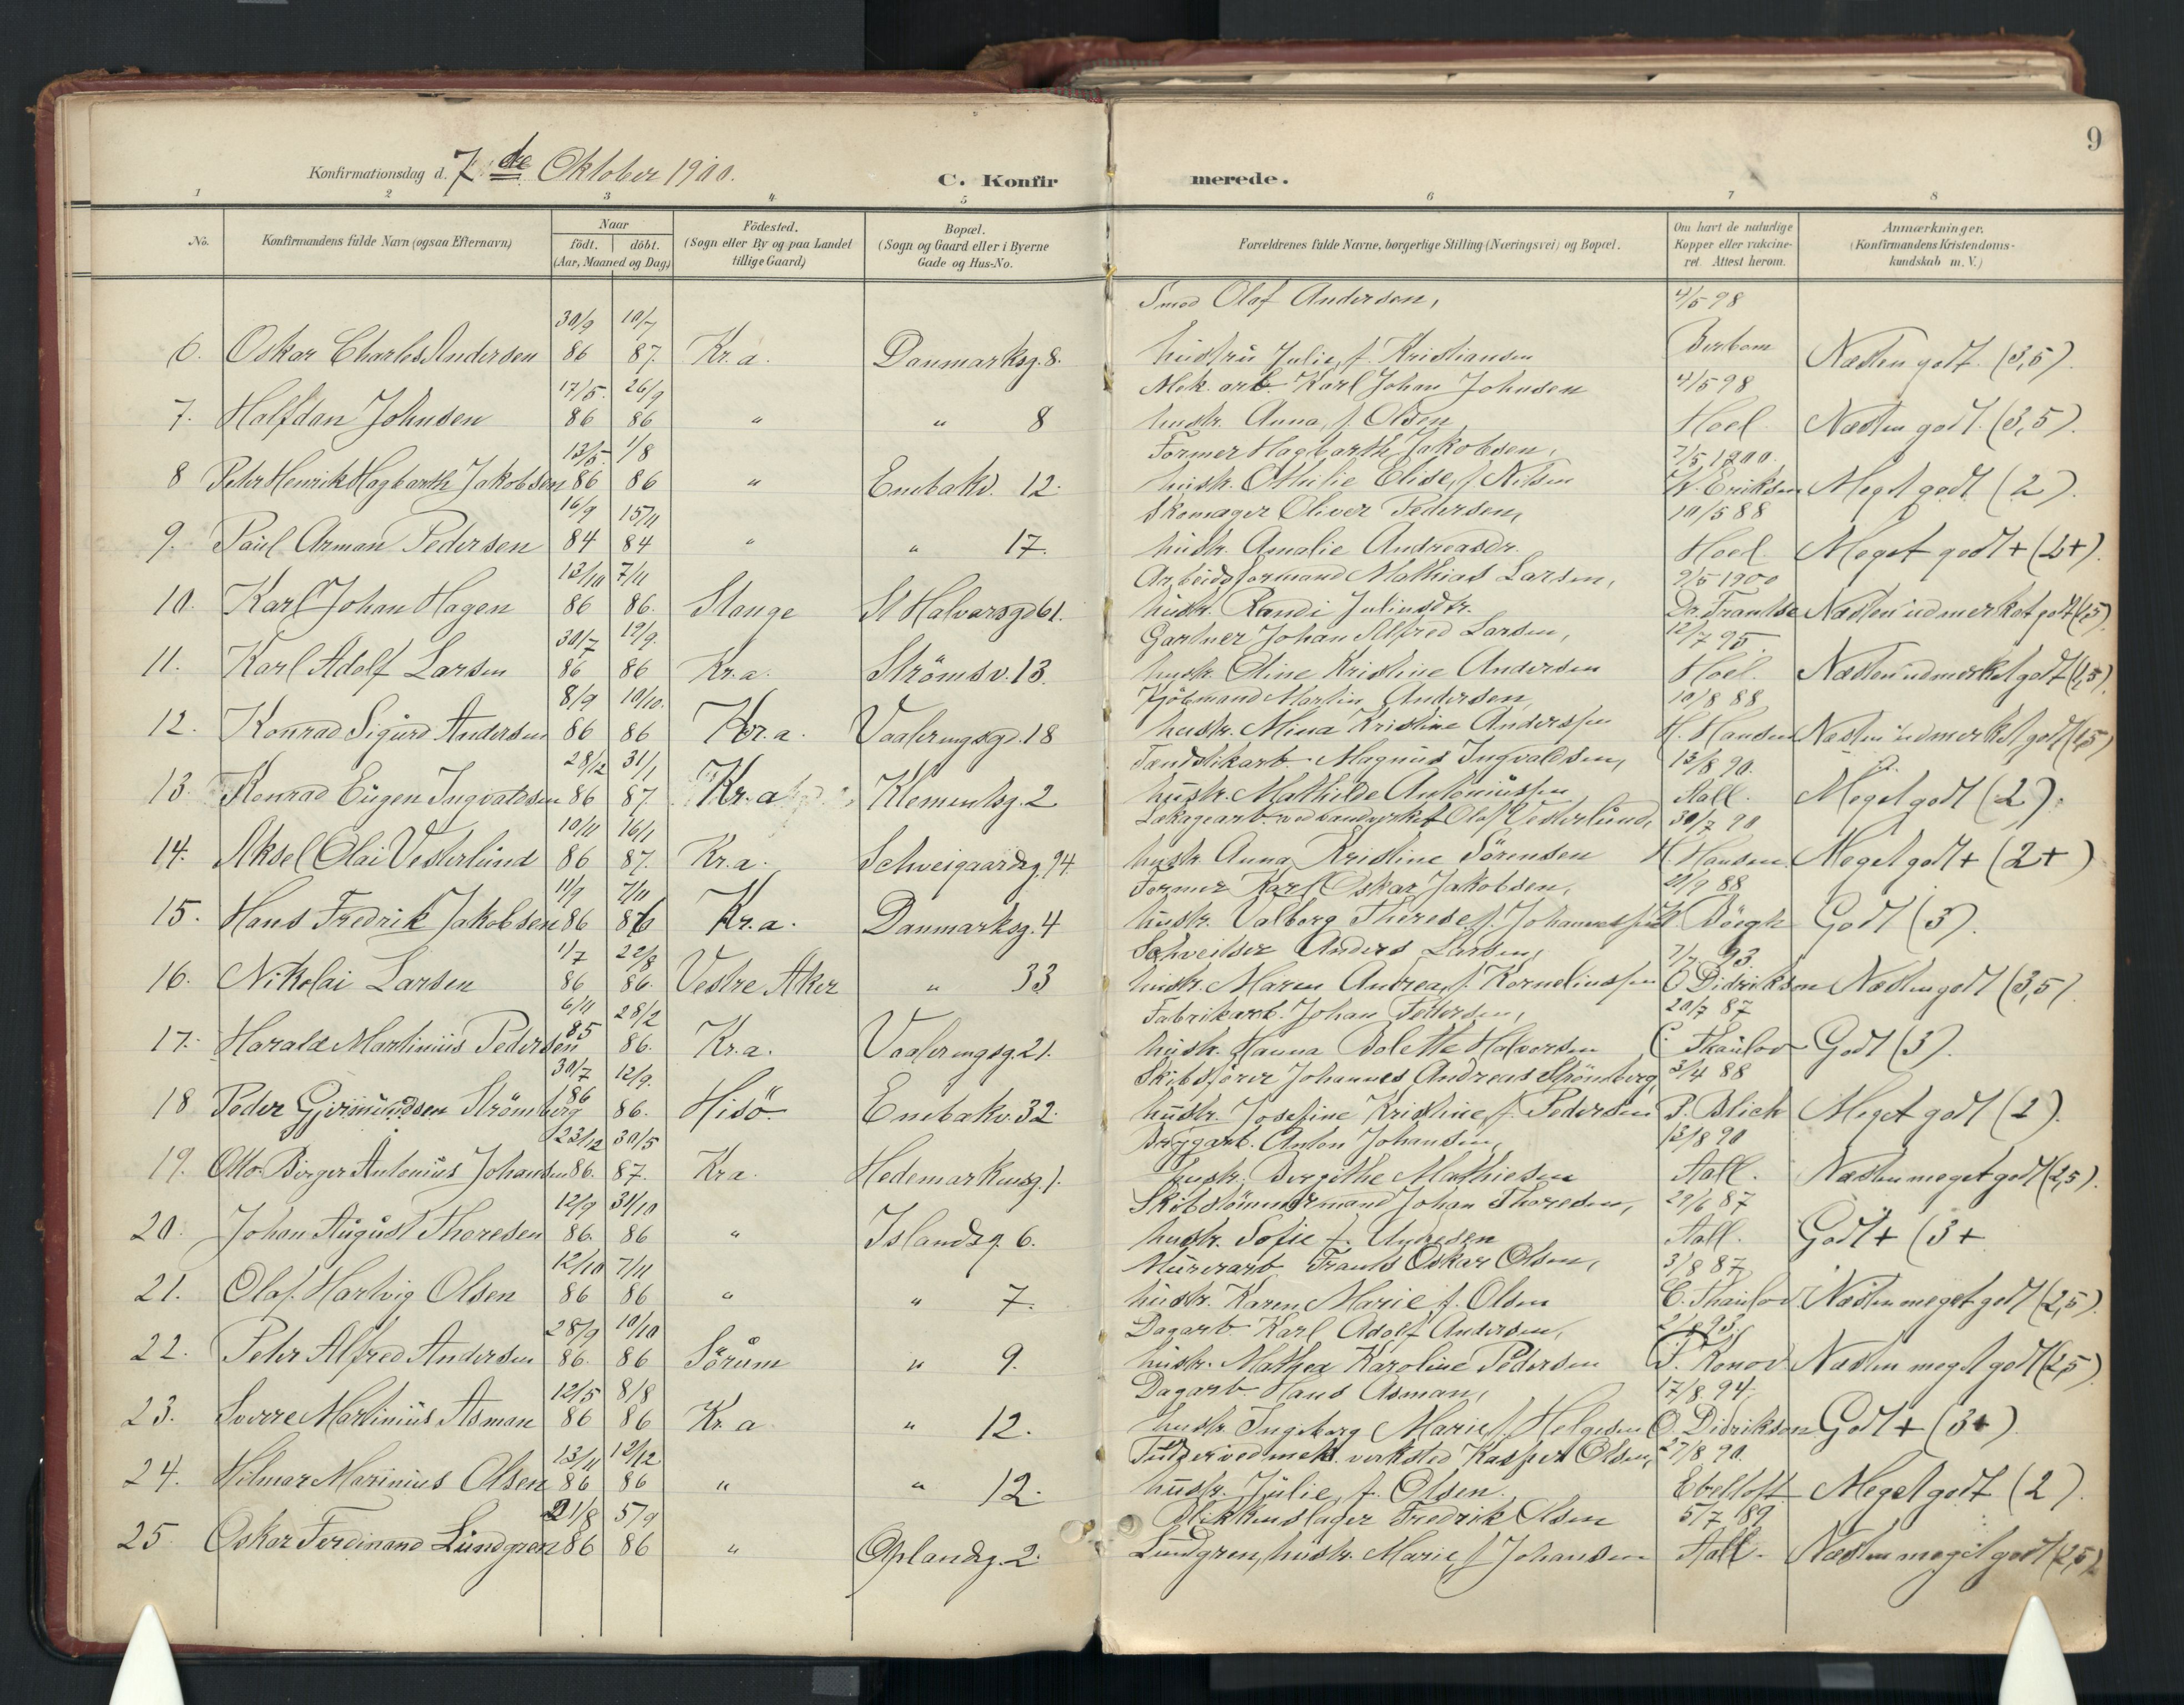 9
Konfirmationsdag d. 7de Oktober 1900.
C. Konfirmerede.
1 2 3 4 5 6 7 8
No.
Konfirmandens fulde Navn (ogsaa Efternavn)
Naar
födt. döbt.
(Aar, Maaned og Dag.)
Födested.
(Sogn eller By og paa Landet
tillige Gaard)
Bopæl.
(Sogn og Gaard eller i Byerne
Gade og Hus-No.
Forældrenes fulde Navne, borgerlige Stilling (Næringsvei) og Bopæl.
Om havt de naturlige
Kopper eller vakcine-
ret. Attest herom.
Anmærkninger.
(Konfirmandens Kristendoms-
kundskab m. V.)
30/9 10/7 Smed Olaf Andersen, 4/5 98
6. Oskar Charles Andersen 86 87. Kr.a. Danmarksg. 8. hustru Julie, f. Kristiansen Berbom Næsten godt. (3,5).
17/5. 26/9 Mek. arb. Karl Johan Johnsen 4/5 98
7. Halfdan Johnsen 86 86 " " 8 hustr. Anna, f. Olsen Hoel Næsten godt. (3,5).
13/5. 1/8 Former Hagbarth Jakobsen, 7/5 1900.
8 Peter Henrik Hagbarth Jakobsen 86 86 " Enebakv. 12. hustr. Othilie Elise, f. Nilsen W. Eriksen Meget godt (2).
16/9 15/11 Skomager Oliver Pedersen, 10/5 88
9. Paul Arman Pedersen 84 84 " " 17. hustr. Amalie Andreasdr. Hoel Meget godt + (2+).
13/10 7/11 Arbeidsformand Mathias Larsen, 9/5 1900
10. Karl Johan Hagen 86 86. Stange St Halvarsgd 61. hustr. Randi Juliusdtr. Dr. Frantse Næsten udmerket godt (1,5)
30/7 19/9. Gartner Johan Alfred Larsen, 12/7 95.
11. Karl Adolf Larsen 86 86 Kr.a. Strömsv. 13. hustr. Oline Kristine Andersen Hoel. Næsten udmerket godt (1,5).
8/9 10/10. Kjöbmand Martin Andersen, 10/8 88
12. Konrad Sigurd Andersen 86 86 Kr.a. Vaaleringsgd. 18 hustr. Mina Kristine Andersen H. Hansen Næsten udmerket godt (1,5)
28/12 31/1 Fændstikarb. Magnus Ingvaldsen, 13/8 90.
13. Konrad Eugen Ingvaldsen 86 87 Kr.a Klementsg. 2 hustr. Mathilde Antoniussen Aall. Meget godt (2).
10/11 16/1 ved Olaf Vesterlund, 30/7 90
14. Aksel Olai Vesterlund 86 87. Kr.a. Schweigaardsg. 94. hustr. Anna Kristine Sörensen H. Hansen Meget godt + (2+)
11/9 7/11 Former Karl Oskar Jakobsen, 21/9 88
15. Hans Fredrik Jakobsen 86 86 Kr.a. Danmarksg. 4 hustr. Valborg Therese f. Johannessen Börgh Godt (3).
1/7 22/8 Schveitser Anders Larsen, 7/7 93
16. Nikolai Larsen 86 86. Vestre Aker " 33 hustr. Maren Andrea, f. Korneliussen O Didriksen Næsten godt (3,5).
6/11 28/2 Fabrikarb. Johan Pettersen, 20/7 87
17. Harald Martinius Pedersen 85 86. Kr.a. Vaaleringsg. 21. hustr. Hanna Bolette Halvorsen C. Thaulov Godt (3).
30/7 12/9. Skibsförer Johannes Andreas Strömberg, 3/4 88
18 Peder Gjermundsen Strömberg 86 86. Hisö Enebakv. 32. hustr. Josefine Kristine, f. Pedersen P. Blich Meget godt (2).
23/12 30/5 Brygarb. Anton Johansen, 13/8 90
19. Otto Birger Antonius Johansen 86. 87. Kr.a. Hedemarkensg. 1. hustr. Bergithe Mathiesen Aall. Næsten meget godt (2,5).
12/9 31/10 Skibstömmermand Johan Thoresen, 29/6 87
20. Johan August Thoresen 86. 86 " Islandsg. 6. hustr. Sofie f. Andresen Aall. Godt + (3+
12/10 7/11 Murerarb. Frants Oskar Olsen, 3/8 87
21. Olaf Hartvig Olsen 86 86 " " 7. hustr. Karen Marie f. Olsen C. Thaulov Næsten meget godt (2,5).
28/9 10/10 Dagarb. Karl Adolf Andersen,
22. Peter Alfred Andersen 86. 86 Sörum " 9. hustr. Mathea Karoline Pedersen Konov Næsten meget godt (2,5)
12/5 8/8 Dagarb. Hans Asman, 17/8. 94.
23. Sverre Martinius Asman 86 86 Kr.a " 12. hustr. Ingeborg Marie f. Helgesen O. Didriksen Godt + (3+)
13/11 12/12 ved mek. verksted Kasper Olsen, 27/8 90.
24. Hilmar Marinius Olsen 86 86 " " 12. hustr. Julie, f. Olsen. Ebeltoft Meget godt (2).
21/8 5/9 Blikkenslager Fredrik Olsen 5/7 89
25 Oskar Ferdinand Lundgren 86 86 " Oplandsg. 2. Lundgren, hustr. Marie, f. Johansen Aall. Næsten meget godt (2,5)